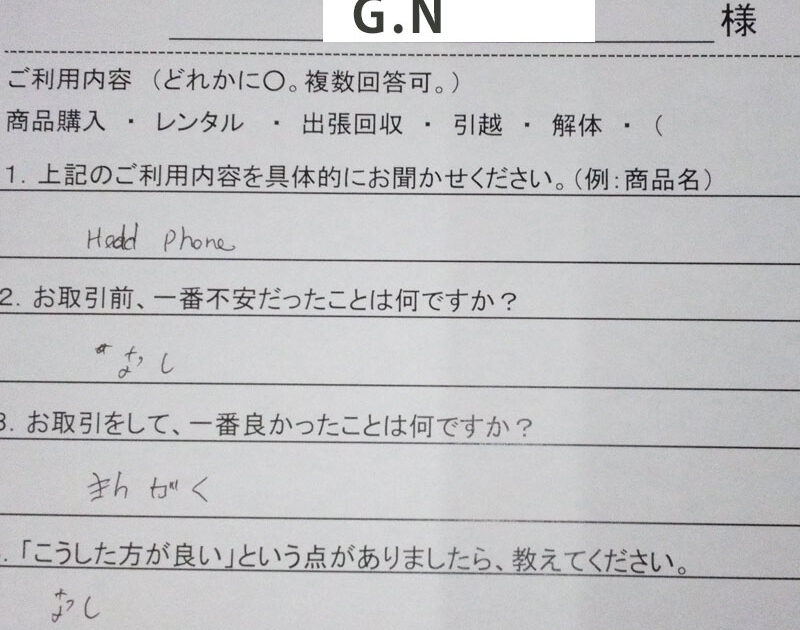 G.N 様
ご利用内容 (どれかに〇。複数回答可。)
商品購入 ・ レンタル ・ 出張回収 ・ 引越 ・ 解体 ・ (
1. 上記のご利用内容を具体的にお聞かせください。(例:商品名)
Head phone
2. お取引前、一番不安だったことは何ですか?
なし
3. お取引をして、一番良かったことは何ですか?
きんがく
.「こうした方が良い」という点がありましたら、教えてください。
なし